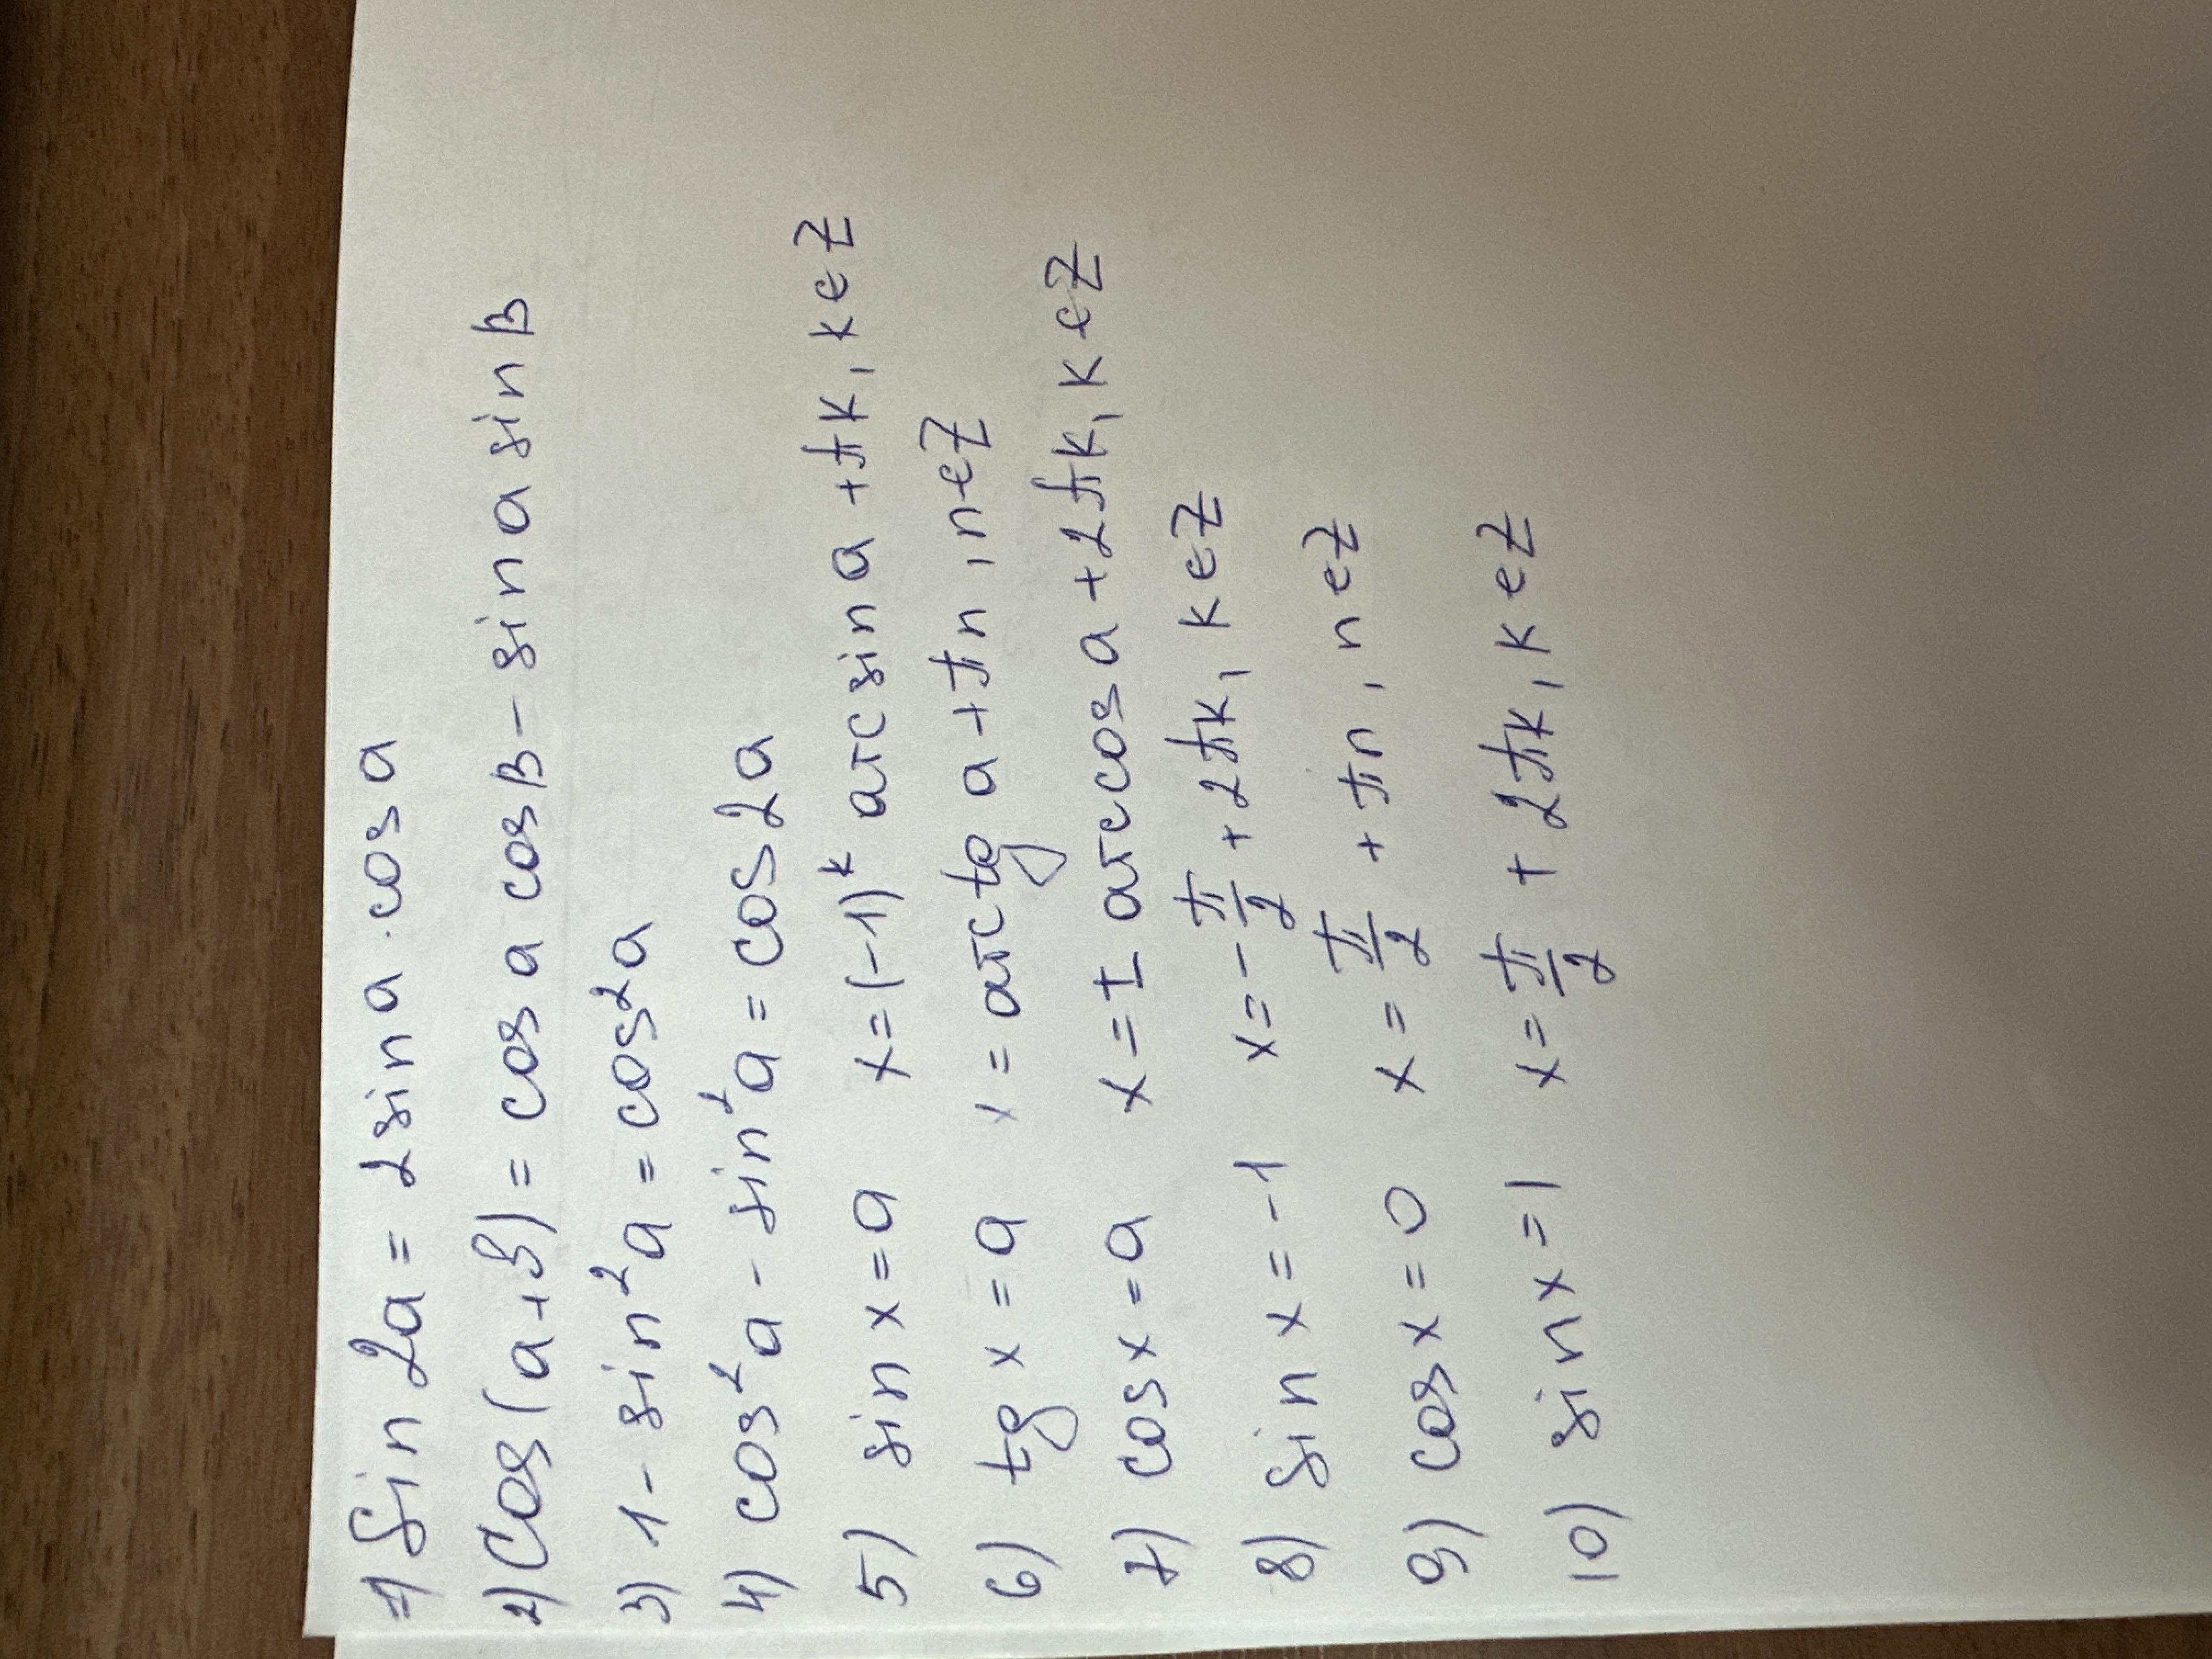 1) Sin 2a = 2 sin a · cos a
2) Cos (a+β) = cos a cos β - sin a sin β
3) 1 - sin² a = cos² a
4) cos² a - sin² a = cos 2a
5) sin x = a x = (-1)ᵏ arcsin a + πk, k∈Z
6) tg x = a x = arctg a + πn, n∈Z
7) cos x = a x = ± arccos a + 2πk, k∈Z
8) sin x = -1 x = -π/2 + 2πk, k∈Z
9) cos x = 0 x = π/2 + πn, n∈Z
10) sin x = 1 x = π/2 + 2πk, k∈Z